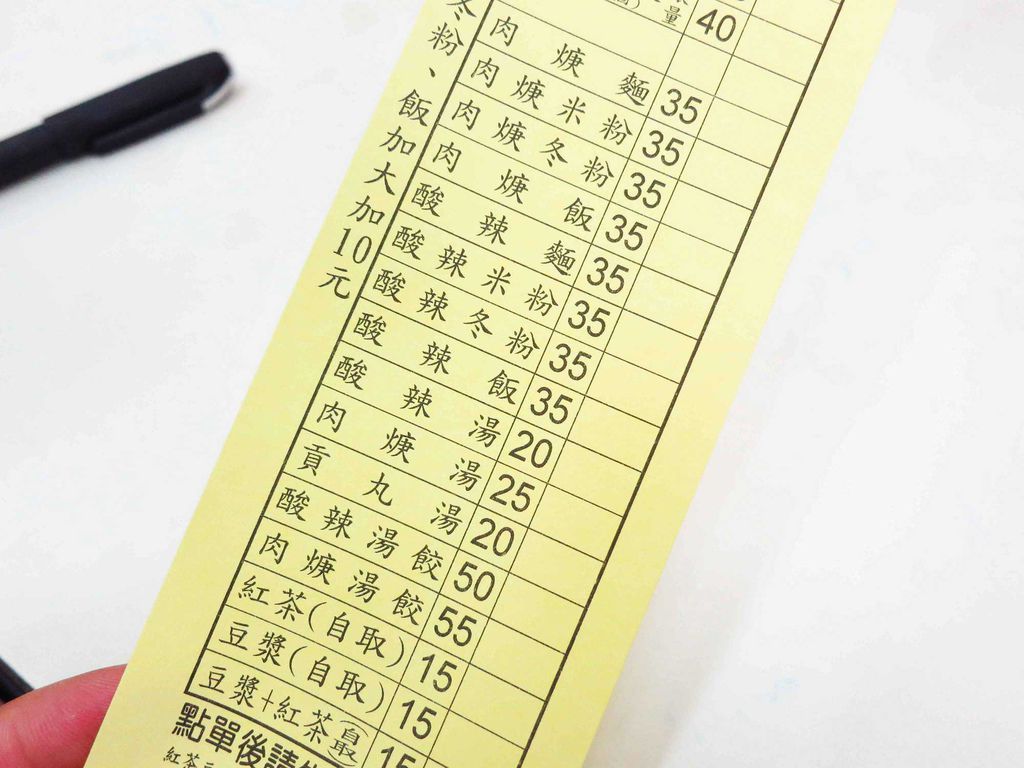 量 40
肉焿麵 35
肉焿米粉 35
肉焿冬粉 35
肉焿飯 35
酸辣麵 35
酸辣米粉 35
酸辣冬粉 35
酸辣飯 35
酸辣湯 20
肉焿湯 25
貢丸湯 20
酸辣湯餃 50
肉焿湯餃 55
紅茶(自取) 15
豆漿(自取) 15
豆漿+紅茶(最 15
冬粉、飯加大加10元
點單後請
紅茶